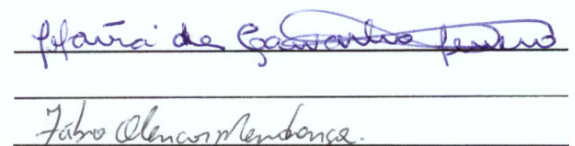 de Carvalho
Fábio Alencar Mendonça.